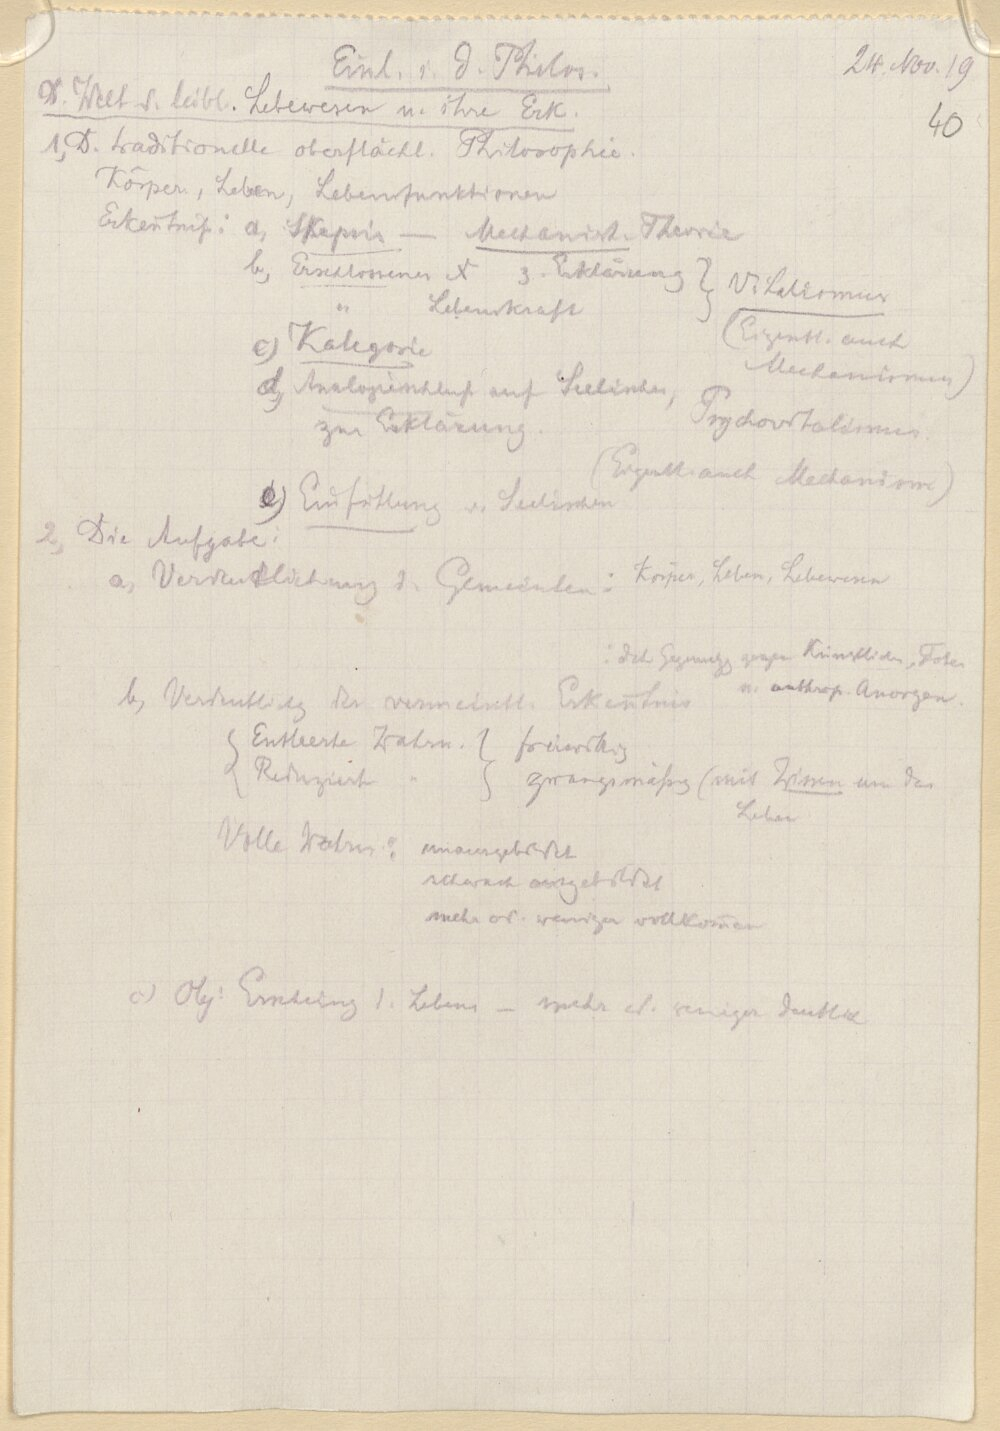 Einl. i. d. Philos. 24. Nov. 19
40
D. Welt d. leibl. Lebewesen u. ihre Erk.
1, D. traditionelle oberflächl. Philosophie.
Körper, Leben, Lebensfunktionen
Erkenntniß: a, Skepsis — Mechanist. Theorie
b, Erschlossenes X z. Erklärung } Vitalismus
" Lebenskraft
(Eigentl. auch
Mechanismus)
c) Kategorie
d, Analogieschluß auf Seelisches,
zur Erklärung. Psychovitalismus.
(Eigentl. auch Mechanism)
e) Einfühlung v. Seelischem
2, Die Aufgabe:
a, Verdeutlichung d. Gemeinten: Körper, Leben, Lebewesen
: Gegensatz gegen Künstliches, Totes
u. anthrop. Anorgan.
b, Verdeutlichg der vermeintl. Erkenntnis
{ Entleerte Wahrn. { freiwillig
Reduzierte " zwangsmäßig (mit Wissen um das
Leben
Volle Wahrn.: unausgebildet
schwach ausgebildet
mehr od. weniger vollkommen
c) Obj: Erscheinung d. Lebens — mehr od. weniger deutlich